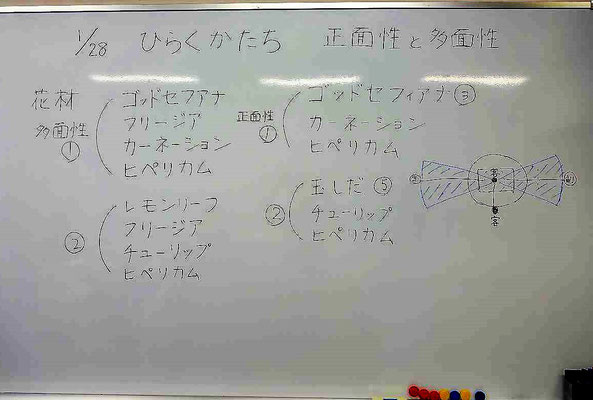 1/28 ひらくかたち 正面性と多面性
花材
多面性
①
ゴッドセフアナ
フリージア
カーネーション
ヒペリカム
②
レモンリーフ
フリージア
チューリップ
ヒペリカム
正面性
①
ゴッドセフィアナ ③
カーネーション
ヒペリカム
②
玉しだ ⑤
チューリップ
ヒペリカム
客